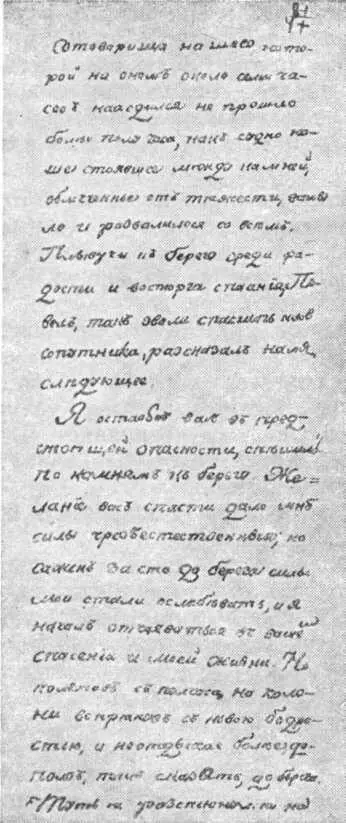 сотоварища нашего, кото-
рой на ономъ около семи ча-
совъ находился не прошло
более полу часа, какъ судно на-
ше стоявшее между камней,
облегченное отъ тяжести, всплы
ло и развалилося со всемъ.
Плывучи къ берегу среди ра-
дости и восторга спасенія, Па-
велъ, такъ звали спасшаго насъ
сопутника, разсказалъ намъ
следующее.
Я оставя васъ въ пред-
стоящей опасности, спешилъ
по камнямъ къ берегу. Же=
ланіе васъ спасти дало мнѣ
силы чрезъестественныя; но
саженъ за сто до берега силы
мои стали ослабѣвать, и я
началъ отчаяваться въ вашемъ
спасеніи и моей жизни. Но
полежавъ съ полчаса на каме-
ни вспрянувъ съ новою бодро-
стію, и неотдыхая более до-
ползъ, такъ сказать, до берега.
Тутъ я растянулся на